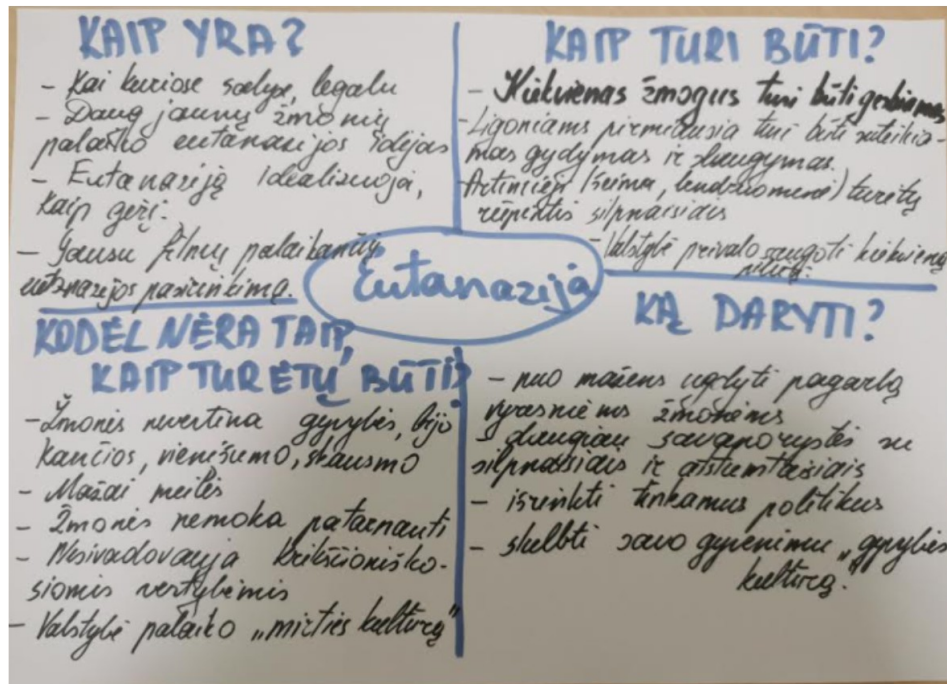 KAIP YRA?
- Kai kuriose šalyse legalu
- Daug jaunų žmonių
palaiko eutanazijos idėjas
- Eutanaziją idealizuoja,
kaip gėrį.
- Gausu filmų palaikančių
eutanazijos pasirinkimą.
KAIP TURI BŪTI?
- Kiekvienas žmogus turi būti gerbiamas
- Ligoniams pirmiausia turi būti suteikia-
mas gydymas ir slaugymas.
Artimieji (šeima, bendruomenė) turėtų
rūpintis silpnaisiais
- Valstybė privalo saugoti kiekvieną
Eutanazija
KODĖL NĖRA TAIP,
KAIP TURĖTŲ BŪTI?
- Žmonės nevertina gyvybės, bijo
kančios, vienišumo, skausmo
- Mažai meilės
- Žmonės nemoka patarnauti
- Nesivadovauja krikščioniško-
siomis vertybėmis
- Valstybė palaiko „mirties kultūrą"
KĄ DARYTI?
- nuo mažens ugdyti pagarbą
vyresniems žmonėms
- daugiau savanorystės su
silpnaisiais ir atstumtaisiais
- išrinkti tinkamus politikus
- skelbti savo gyvenimu „gyvybės
kultūrą.